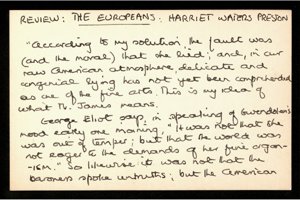 REVIEW: THE EUROPEANS: HARRIET WATERS PRESTON
"According to my solution the fault was
(and the moral) that she lied; and, in our
raw American atmosphere delicate and
congenial lying has not yet been comprehended
as one of the fine arts. This is my idea of
what Mr. James means.
George Eliot says, in speaking of Gwendolen's
mood early one morning, "It was not that she
was out of temper; but that the world was
not equal to the demands of her fine organ-
-ism." So likewise it was not that the
baroness spoke untruths; but the American